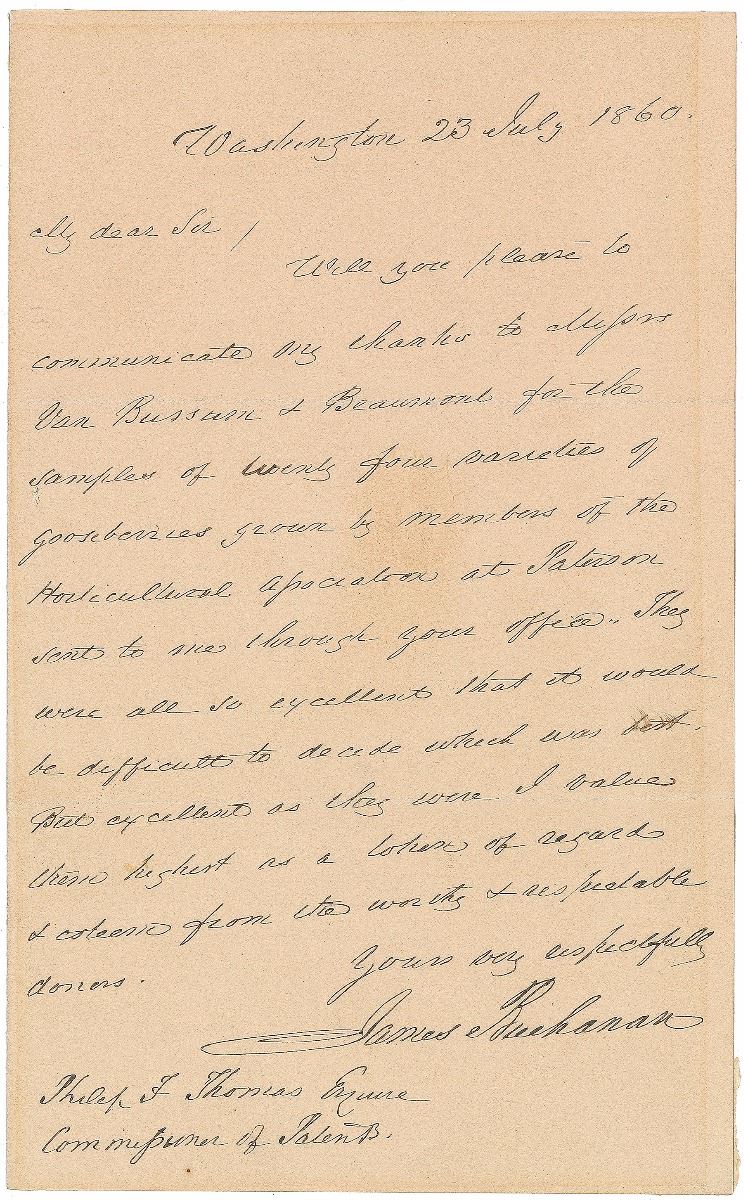 Washington 23 July 1860.
My dear Sir /
Will you please to
communicate my thanks to Messrs
Van Bussum & Beaumont for the
samples of twenty four varieties of
gooseberries grown by members of the
Horticultural Association at Paterson
sent to me through your office. They
were all so excellent that it would
be difficult to decide which was best.
But excellent as they were I value
them highest as a token of regard
& esteem from the worthy & respectable
donors.
Yours very respectfully
James Buchanan
Philip F Thomas Esquire
Commissioner of Patents.